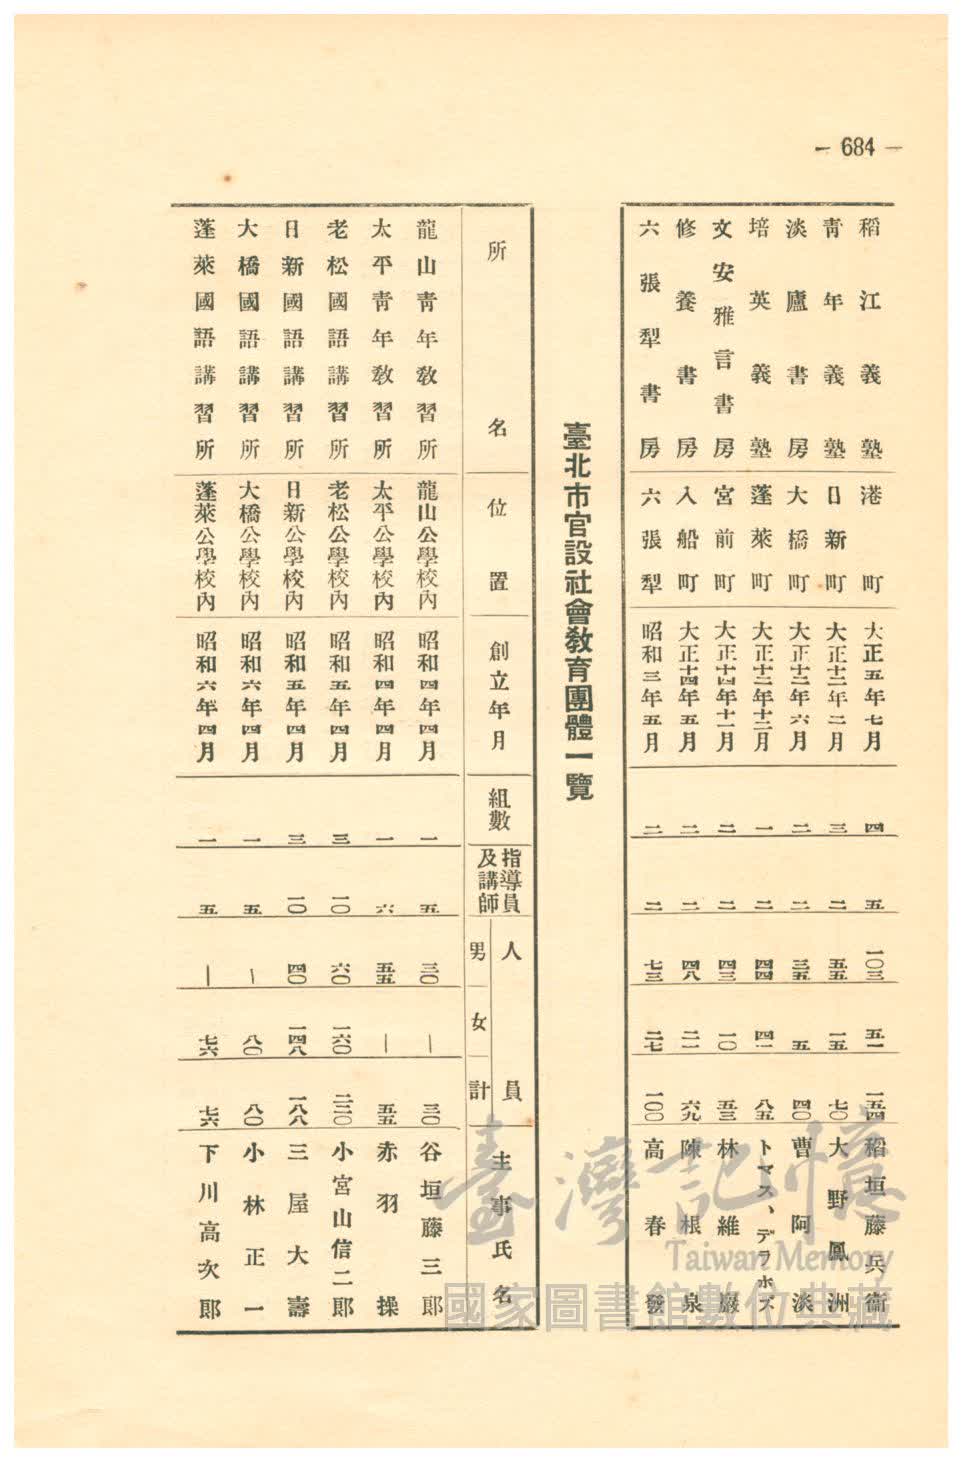 — 684 —
稻江義塾 港町 大正五年七月 四 五 一〇三 五一 一五四 稻垣藤兵衞
靑年義塾 日新町 大正十二年二月 三 二 五五 一五 七〇 大野鳳洲
淡廬書房 大橋町 大正十二年六月 二 二 三五 五 四〇 曹阿淡
培英義塾 蓬萊町 大正十二年十二月 一 二 四四 四一 八五 トマス、デラホズ
文安雅言書房 宮前町 大正十四年十一月 二 二 四三 一〇 五三 林維巖
修養書房 入船町 大正十四年五月 二 二 四八 二一 六九 陳根泉
六張犁書房 六張犁 昭和三年五月 二 二 七三 二七 一〇〇 高春發
臺北市官設社會敎育團體一覽
所名 位置 創立年月 組數 指導員及講師 人員 男 女 計 主事氏名
龍山靑年敎習所 龍山公學校內 昭和四年四月 一 五 三〇 — 三〇 谷垣藤三郎
太平靑年敎習所 太平公學校內 昭和四年四月 一 六 五五 — 五五 赤羽操
老松國語講習所 老松公學校內 昭和五年四月 三 一〇 六〇 一六〇 二二〇 小宮山信二郎
日新國語講習所 日新公學校內 昭和五年四月 三 一〇 四〇 一四八 一八八 三屋大壽
大橋國語講習所 大橋公學校內 昭和六年四月 一 五 — 八〇 八〇 小林正一
蓬萊國語講習所 蓬萊公學校內 昭和六年四月 一 五 — 七六 七六 下川高次郎
臺灣記憶
Taiwan Memory
國家圖書館數位典藏